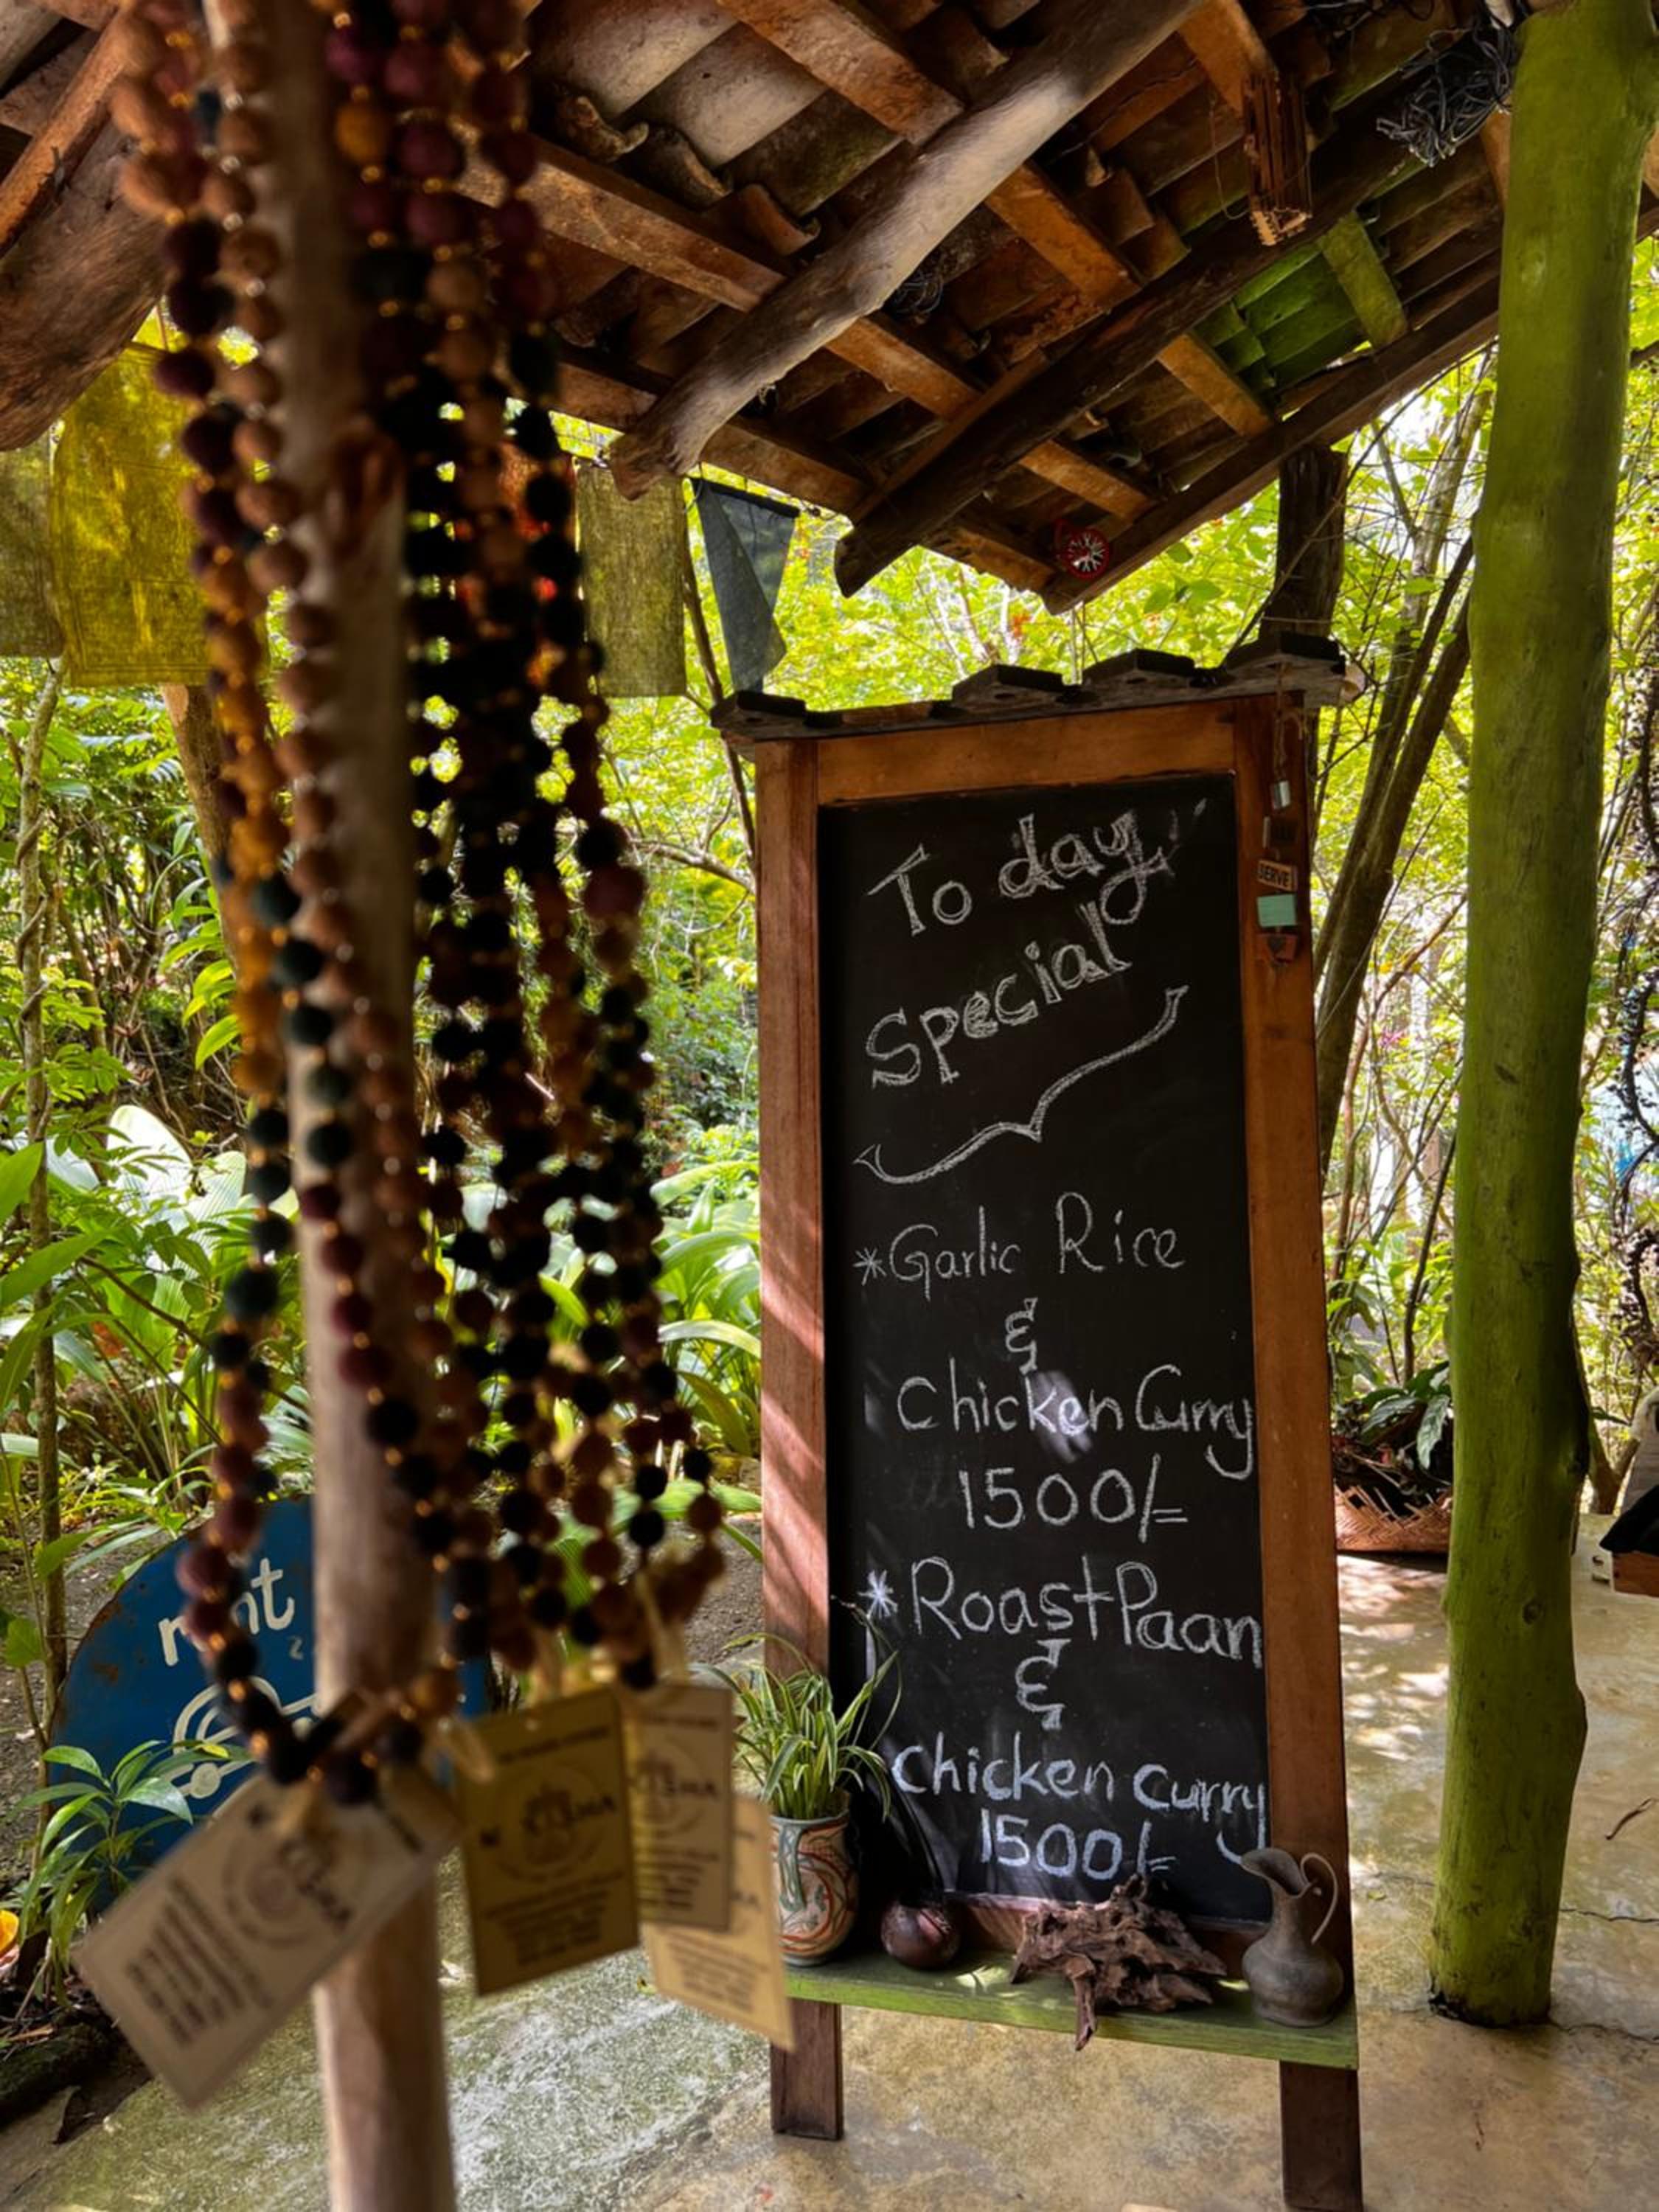 To day
Special
*Garlic Rice
&
Chicken Curry
1500/=
*Roast Paan
&
Chicken Curry
1500/=
SERVE